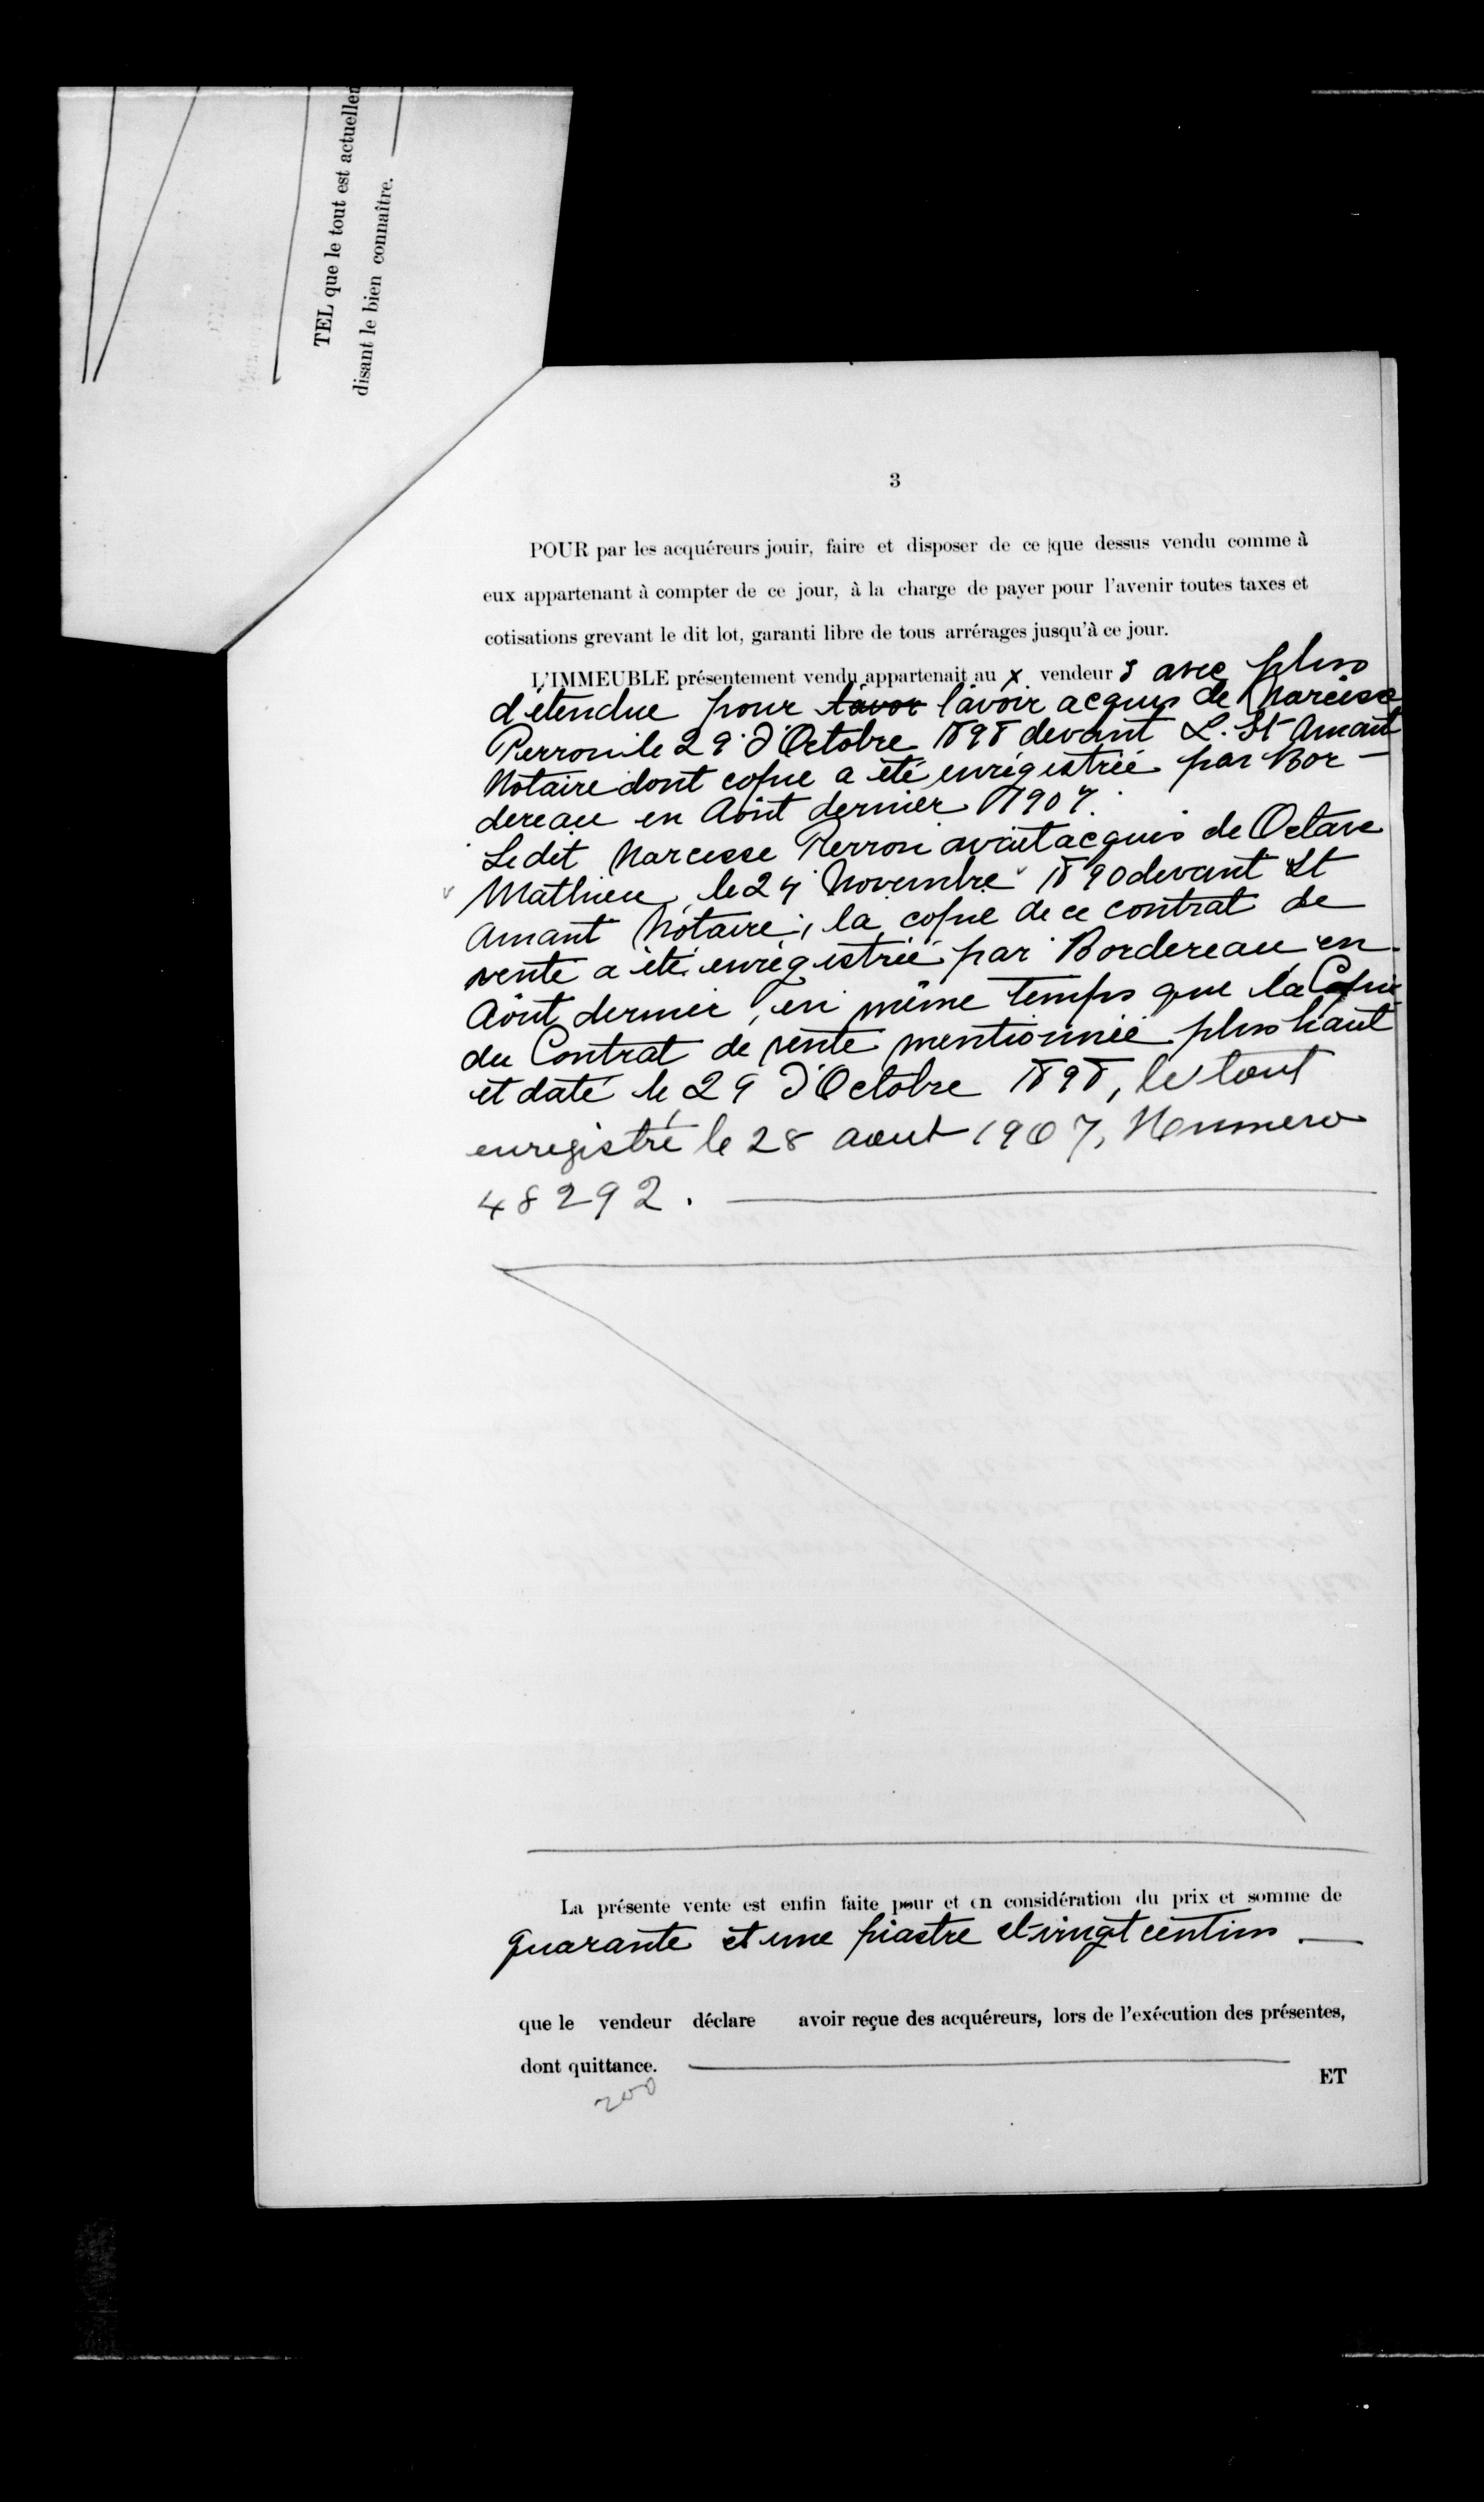 TEL que le tout est actuellem
disant le bien connaître.
3
POUR par les acquéreurs jouir, faire et disposer de ce que dessus vendu comme à
eux appartenant à compter de ce jour, à la charge de payer pour l'avenir toutes taxes et
cotisations grevant le dit lot, garanti libre de tous arrérages jusqu'à ce jour.
L'IMMEUBLE présentement vendu appartenait au x vendeur s avec plus
d'étendue pour l'avoir acquis de Narcisse
Perron le 29 d'Octobre 1898 devant L. St Amant
Notaire dont copie a été enrégistrée par Bor-
dereau en Août dernier 1907.
Ledit Narcisse Perron avait acquis de Octave
Mathieu, le 24 Novembre 1890 devant St
Amant Notaire, la copie de ce contrat de
vente a été enrégistrée par Bordereau en
Août dernier, en même temps que la Copie
du Contrat de vente mentionnée plus haut
et daté le 29 d'Octobre 1898, le tout
enregistré le 28 aout 1907, Numero
48292.
La présente vente est enfin faite pour et en considération du prix et somme de
quarante et une piastre et vingt centins
que le vendeur déclare avoir reçue des acquéreurs, lors de l'exécution des présentes,
dont quittance.
ET
200